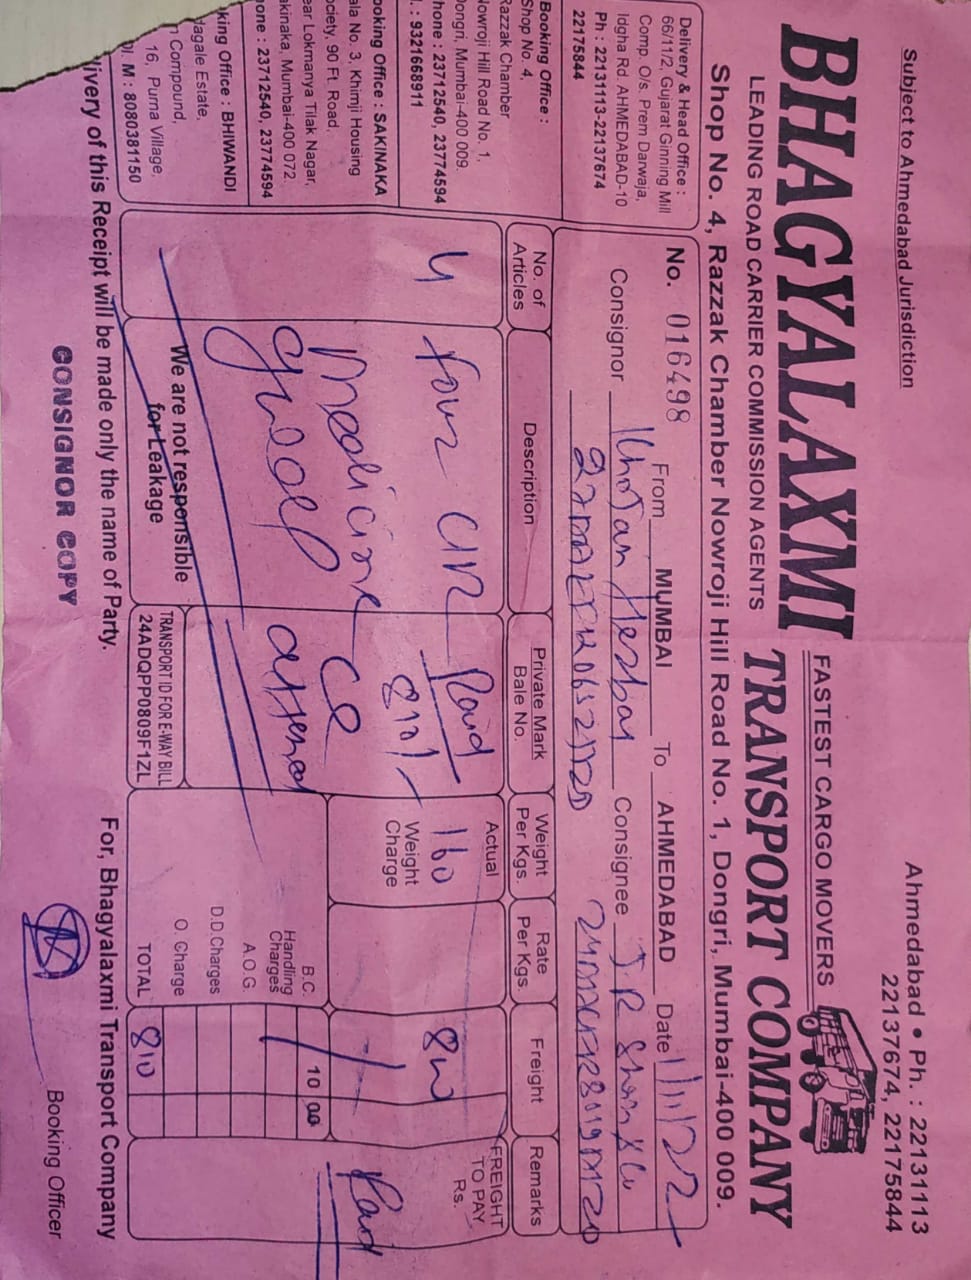 Subject to Ahmedabad Jurisdiction
Ahmedabad • Ph. : 22131113
22137674, 22175844
BHAGYALAXMI
FASTEST CARGO MOVERS
TRANSPORT COMPANY
LEADING ROAD CARRIER COMMISSION AGENTS
Shop No. 4, Razzak Chamber Nowroji Hill Road No. 1, Dongri, Mumbai-400 009.
Delivery & Head Office :
66/11/2, Gujarat Ginning Mill
Comp. O/s. Prem Darwaja,
Idgha Rd. AHMEDABAD-10
Ph : 22131113-22137674
22175844
No. 016498 From MUMBAI To AHMEDABAD Date 1/11/22
Consignor
Consignee
Booking Office :
Shop No. 4,
Razzak Chamber
Nowroji Hill Road No. 1,
Dongri, Mumbai-400 009.
hone : 23712540, 23774594
: 9321668911
ooking Office : SAKINAKA
ala No. 3, Khimji Housing
ociety, 90 Ft. Road,
ear Lokmanya Tilak Nagar,
akinaka, Mumbai-400 072.
one : 23712540, 23774594
king Office : BHIWANDI
dagale Estate,
Compound,
16, Purna Village,
M : 8080381150
No. of Articles
Description
Private Mark Bale No.
Weight Per Kgs.
Rate Per Kgs.
Freight
Remarks
4
four
Paid
810/-
Actual
160
Weight Charge
810
FREIGHT TO PAY Rs.
Medicine
Paid
B.C. 10 00
Handling Charges
A.O.G.
D.D.Charges
O. Charge
TOTAL 810
We are not responsible
for Leakage
TRANSPORT ID FOR E-WAY BILL
24ADQPP0809F1ZL
livery of this Receipt will be made only the name of Party.
For, Bhagyalaxmi Transport Company
CONSIGNOR COPY
Booking Officer